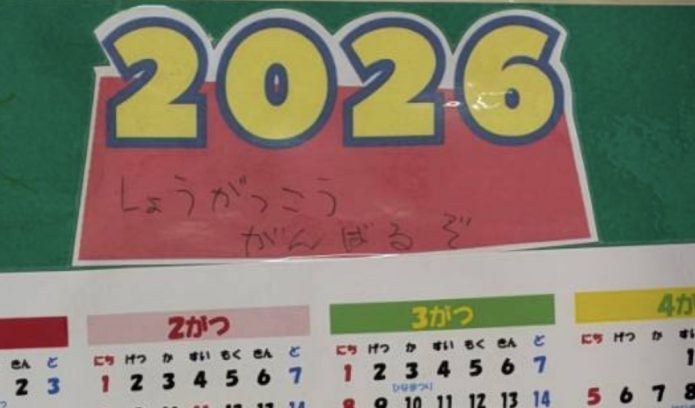 2026
しょうがっこう
がんばるぞ
2がつ
3がつ
4が
きん ど
にち げつ か すい もく きん ど
にち げつ か すい もく きん ど
にち げつ か
2 3
1 2 3 4 5 6 7
1 2 3 4 5 6 7
1
ひなまつり
14
8 9 10 11 12 13 14
5 6 7 8